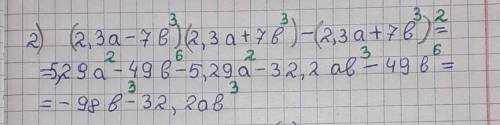 2) (2,3a-7b³)(2,3a+7b³)-(2,3a+7b³)²=
=5,29a²-49b⁶-5,29a²-32,2ab³-49b⁶=
=-98b³-32,2ab³